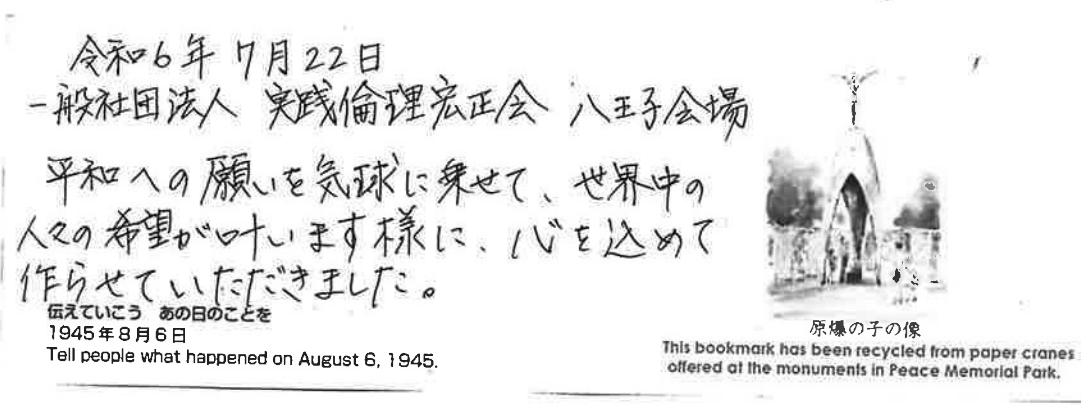 令和6年7月22日
一般社団法人 実践倫理宏正会 八王子会場
平和への願いを気球に乗せて、世界中の
人々の希望が叶います様に、心を込めて
作らせていただきました。
伝えていこう あの日のことを
1945年8月6日
Tell people what happened on August 6, 1945.
原爆の子の像
This bookmark has been recycled from paper cranes
offered at the monuments in Peace Memorial Park.